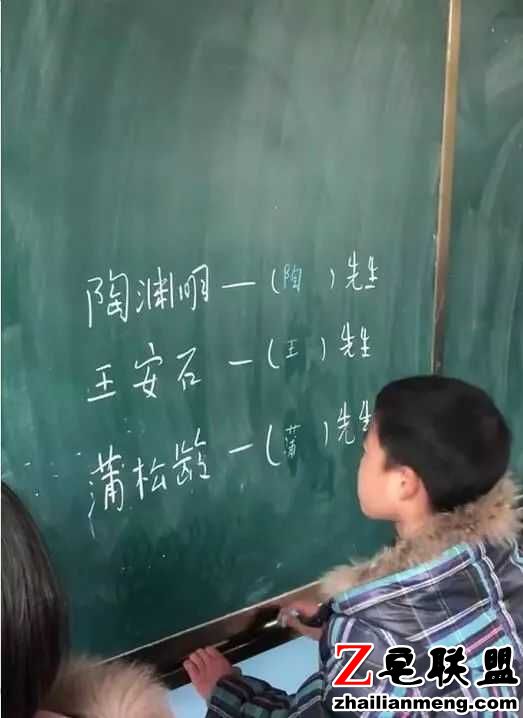 陶渊明—(陶)先生
王安石—(王)先生
蒲松龄—(蒲)先生
Z宅联盟
zhailianmeng.com